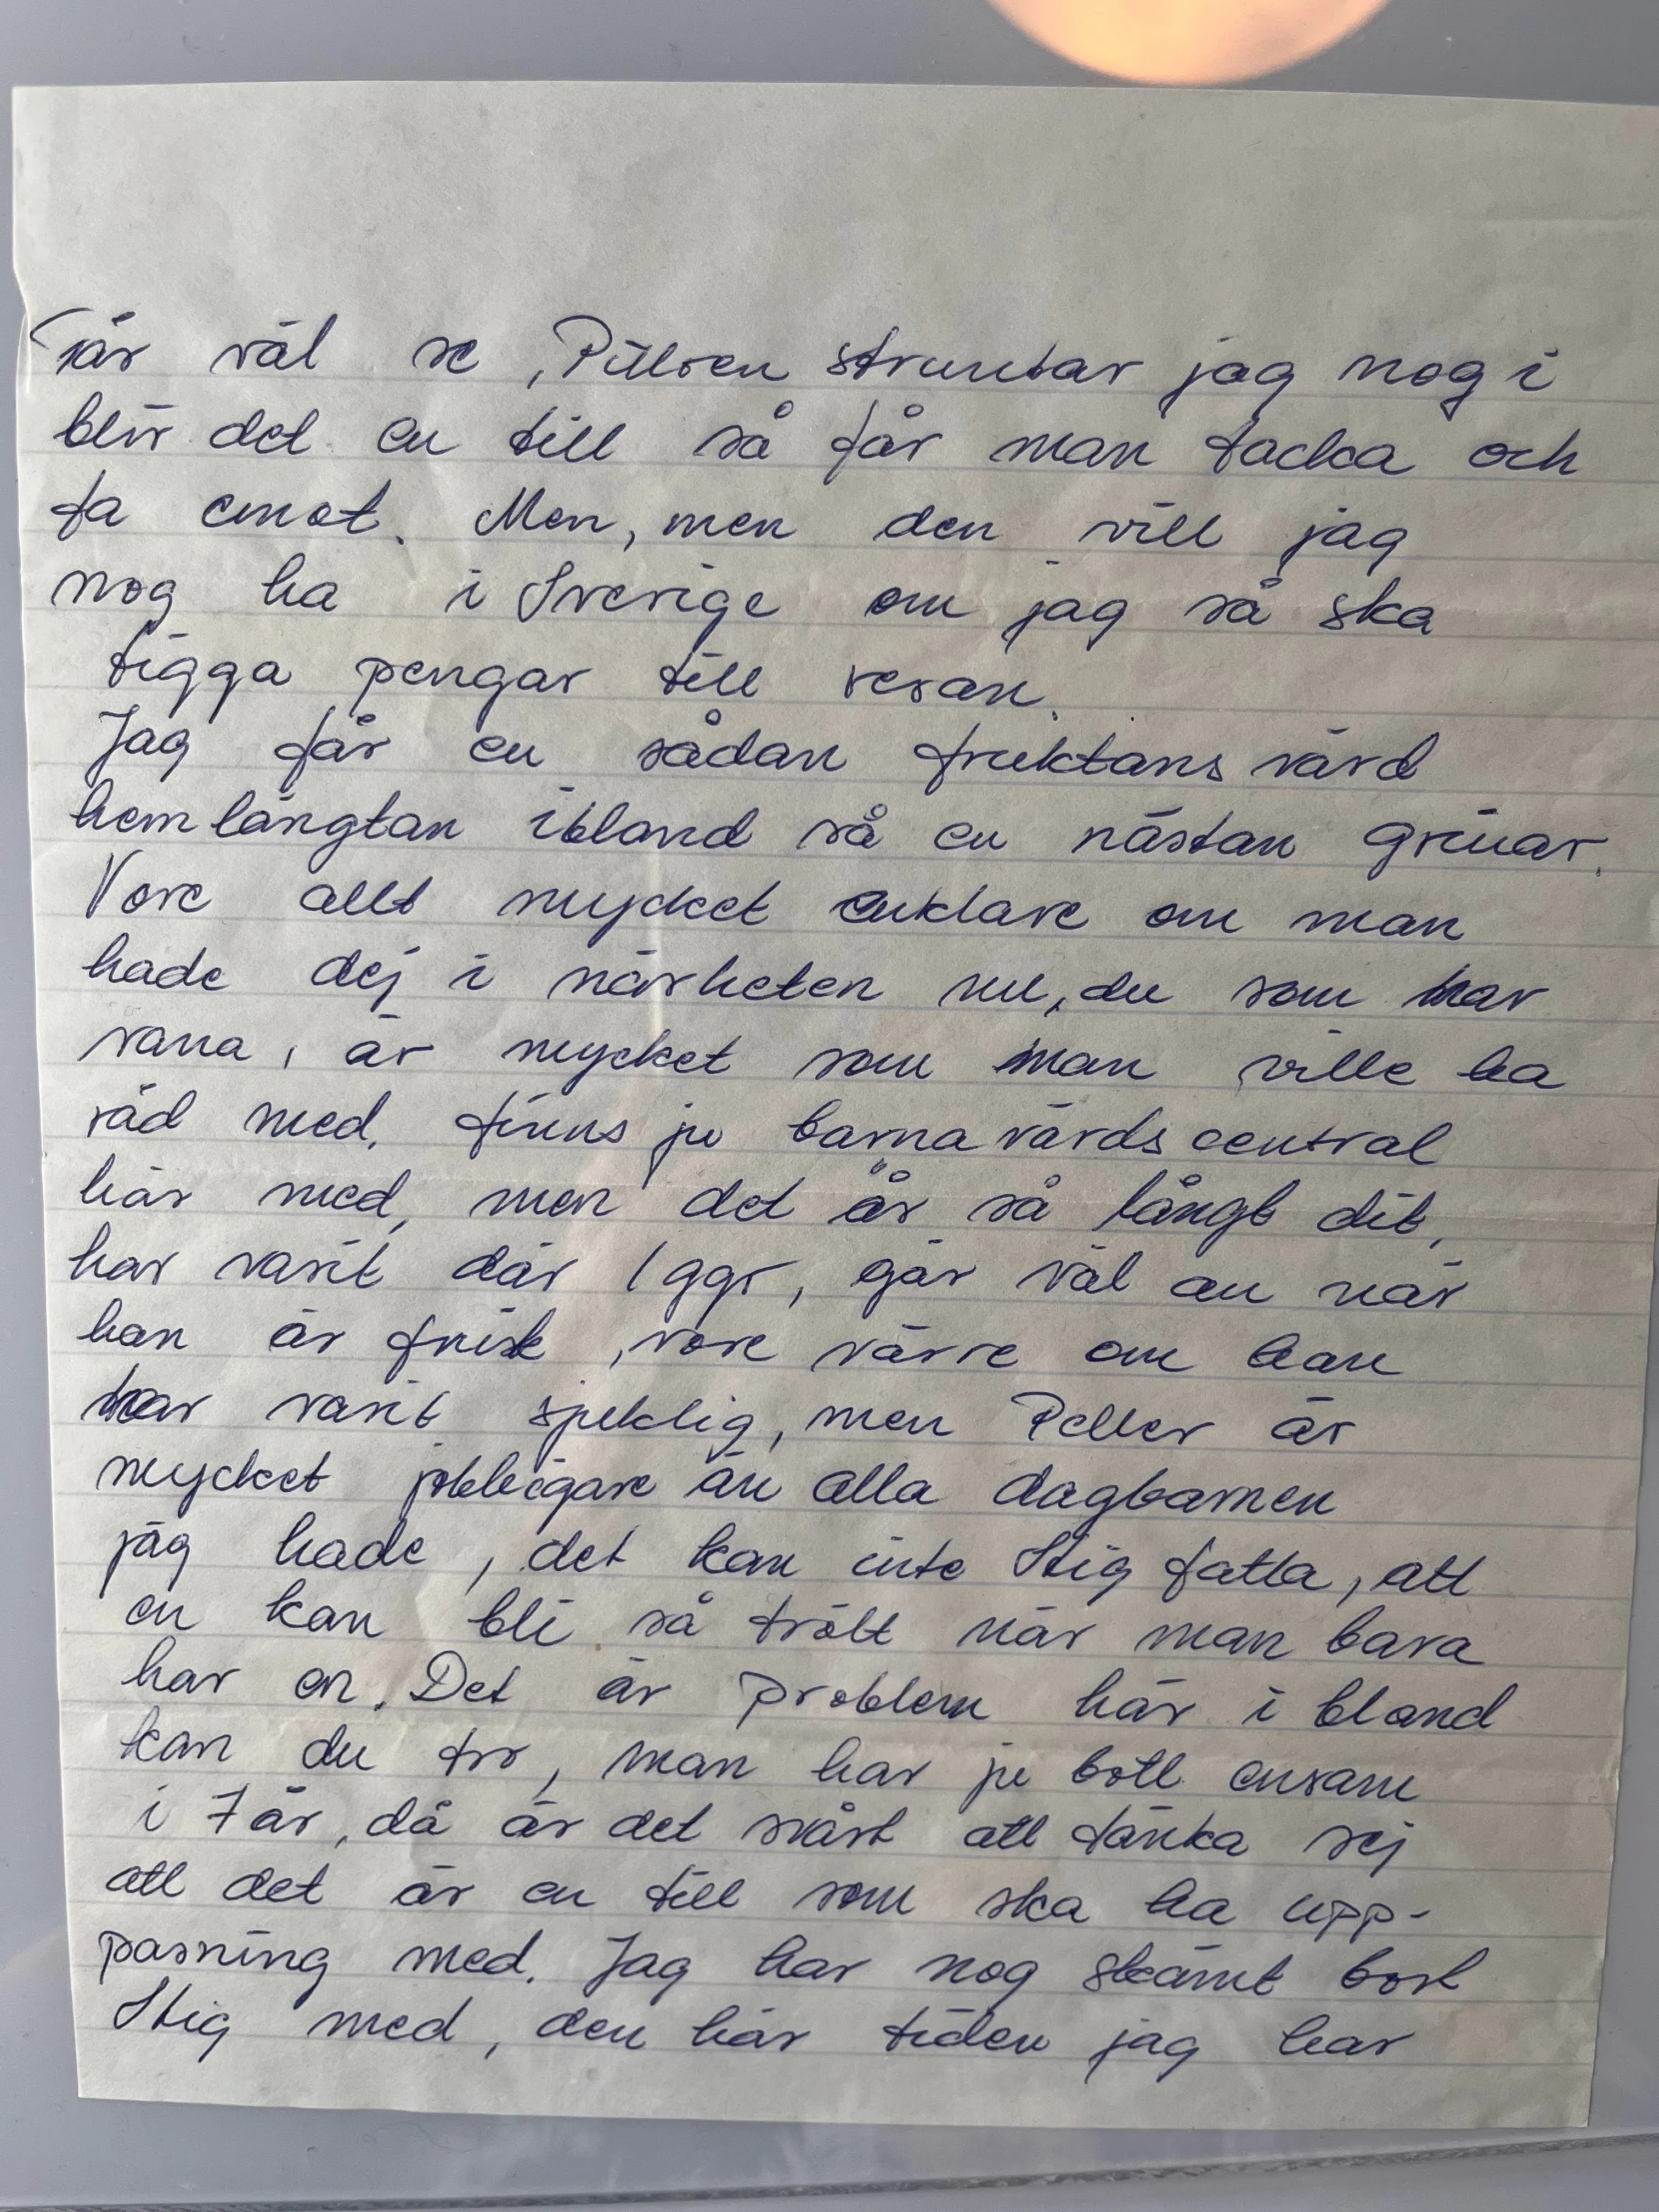 Får väl se, Pillren struntar jag nog i
blir det en till så får man tacka och
ta emot. Men, men den vill jag
nog ha i Sverige om jag så ska
tigga pengar till resan.
Jag får en sådan fruktans värd
hemlängtan ibland så en nästan grinar.
Vore allt mycket enklare om man
hade dej i närheten nu, du som har
vana, är mycket som man ville ha
råd med. finns ju barnavårdscentral
här med, men det är så långt dit,
har varit där 1 ggr, går väl an när
han är frisk, vore värre om han
har varit sjuklig, men Peller är
mycket jobbigare än alla dagbarnen
jag hade, det kan inte Stig fatta, att
en kan bli så trött när man bara
har en. Det är problem här i bland
kan du tro, man har ju bott ensam
i 7 år, då är det svårt att tänka sej
att det är en till som ska ha upp-
pasning med. Jag har nog skämt bort
Stig med, den här tiden jag har